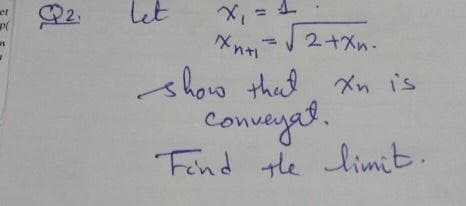 Q2. Let x₁ = 1.
xₙ₊₁ = √2+xₙ.
show that xₙ is
convergat.
Find the limit.